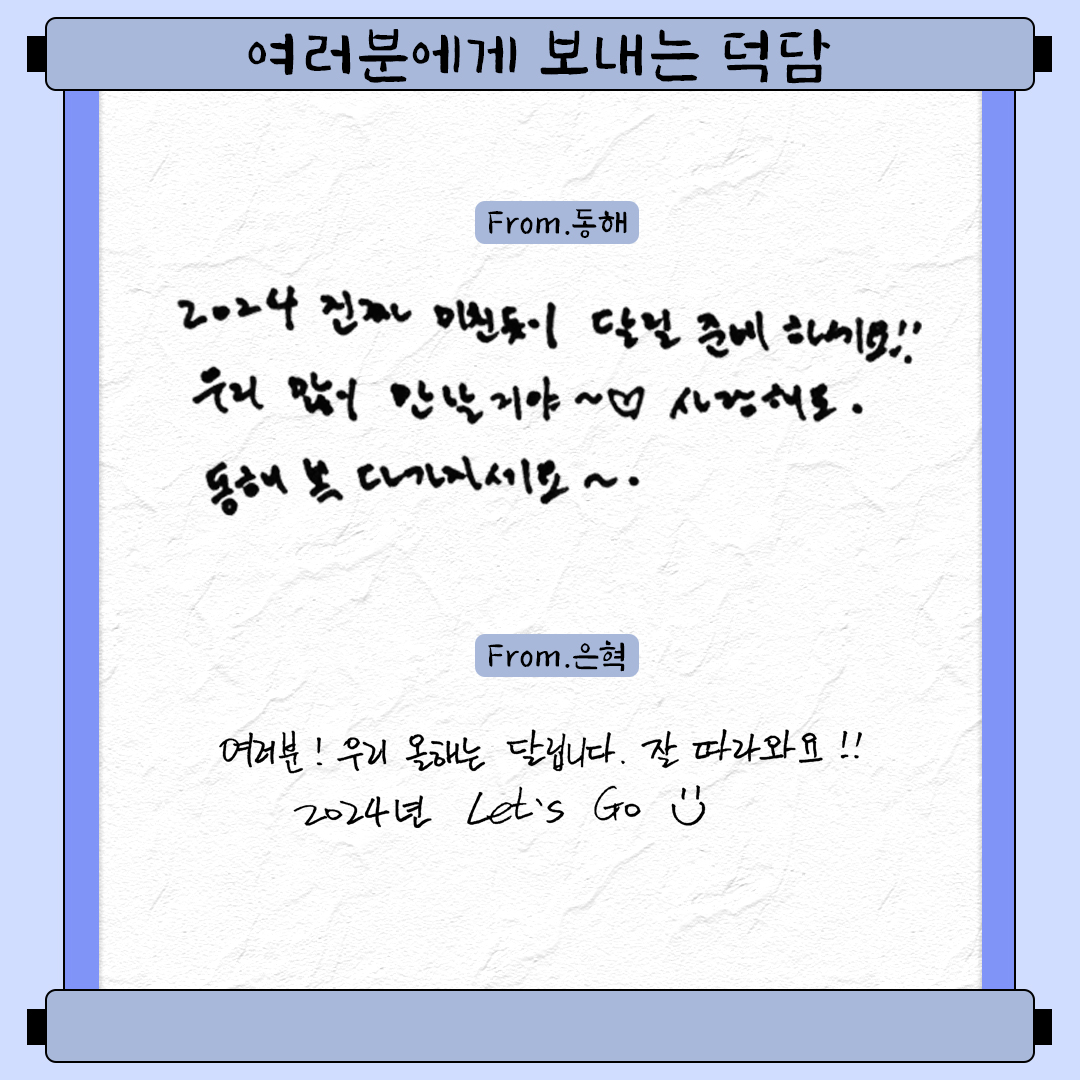 여러분에게 보내는 덕담
From.동해
2024 진짜 미친듯이 달릴 준비 하세요!!
우리 많이 만날거야~♡ 사랑해요.
동해 복 다가지세요~.
From.은혁
여러분! 우리 올해는 달립니다. 잘 따라와요!!
2024년 Let's Go